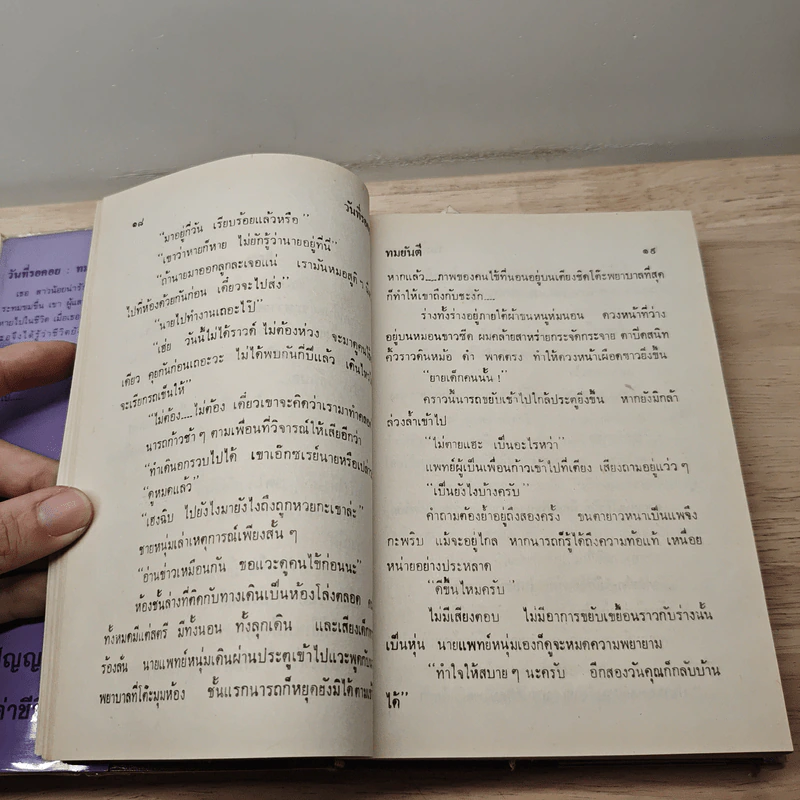 วันที่รอคอย : ทม
เธอ สาวน้อยน่ารั
ระทมขมขื่น เขา ผู้แส
หายไปในชีวิต เมื่อเธอ
ธอจึงได้รู้ว่าชีวิตยัง
ปัญญ
ค่าชีวิ
๑๘
วันที่รอค
“มาอยู่กี่วัน เรียบร้อยแล้วหรือ”
“เขาว่าหายก็หาย ไม่ยักรู้ว่านายอยู่ที่นี่”
“ถ้านายมาออกลูกละเจอแน่ เรามันหมอสูติ ๆ
ไปที่ห้องด้วยกันก่อน เดี๋ยวจะไปส่ง”
“นายไปทำงานเถอะไป๊”
“เฮ่ย วันนี้ไม่ได้ราวด์ ไม่ต้องห่วง จะมาดูคนไข้
เดียว คุยกันก่อนเถอะวะ ไม่ได้พบกันกี่ปีแล้ว เดินไหว
จะเรียกรถเข็นให้”
“ไม่ต้อง....ไม่ต้อง เดี๋ยวเขาจะคิดว่าเรามาทำคลอด
นารถก้าวช้า ๆ ตามเพื่อนที่วิจารณ์ให้เสียอีกว่า
“ทำเดินอกรวบไปได้ เขาเอ๊กซเรย์นายหรือเปล่า
“ดูหมดแล้ว”
“เฮงฉิบ ไปยังไงมายังไงถึงถูกหวยกะเขาล่ะ”
ชายหนุ่มเล่าเหตุการณ์เพียงสั้น ๆ
“อ่านข่าวเหมือนกัน ขอแวะดูคนไข้ก่อนนะ”
ห้องชั้นล่างที่ติดกับทางเดินเป็นห้องโล่งตลอด
ทั้งหมดมีแต่สตรี มีทั้งนอน ทั้งลุกเดิน และเสียงเด็ก
ร้องลั่น นายแพทย์หนุ่มเดินผ่านประตูเข้าไปแวะพูดกับ
พยาบาลที่โต๊ะมุมห้อง ชั้นแรกนารถก็หยุดยังมิได้ตามเข้า
ทมยันตี
๑๙
หากแล้ว....ภาพของคนไข้ที่นอนอยู่บนเตียงชิดโต๊ะพยาบาลที่สุด
ก็ทำให้เขาถึงกับชะงัก....
ร่างทั้งร่างอยู่ภายใต้ผ้าขนหนูห่มนอน ดวงหน้าที่วาง
อยู่บนหมอนขาวซีด ผมคล้ายสาหร่ายกระจัดกระจาย ตาปิดสนิท
คิ้วราวต้นหม่อ ดำ พาดตรง ทำให้ดวงหน้าเผือดขาวยิ่งขึ้น
“ยายเด็กคนนั้น !”
คราวนี้นารถขยับเข้าไปใกล้ประตูยิ่งขึ้น หากยังมิกล้า
ล่วงล้ำเข้าไป
“ไม่ตายแฮะ เป็นอะไรหว่า”
แพทย์ผู้เป็นเพื่อนก้าวเข้าไปที่เตียง เสียงถามอยู่แว่ว ๆ
“เป็นยังไงบ้างครับ”
คำถามต้องย้ำอยู่ถึงสองครั้ง ขนตายาวหนาเป็นแพจึง
กะพริบ แม้จะอยู่ไกล หากนารถก็รู้ได้ถึงความท้อแท้ เหนื่อย
หน่ายอย่างประหลาด
“ดีขึ้นไหมครับ”
ไม่มีเสียงตอบ ไม่มีอาการขยับเขยื้อนราวกับร่างนั้น
เป็นหุ่น นายแพทย์หนุ่มเองก็ดูจะหมดความพยายาม
“ทำใจให้สบาย ๆ นะครับ อีกสองวันคุณก็กลับบ้าน
ได้”